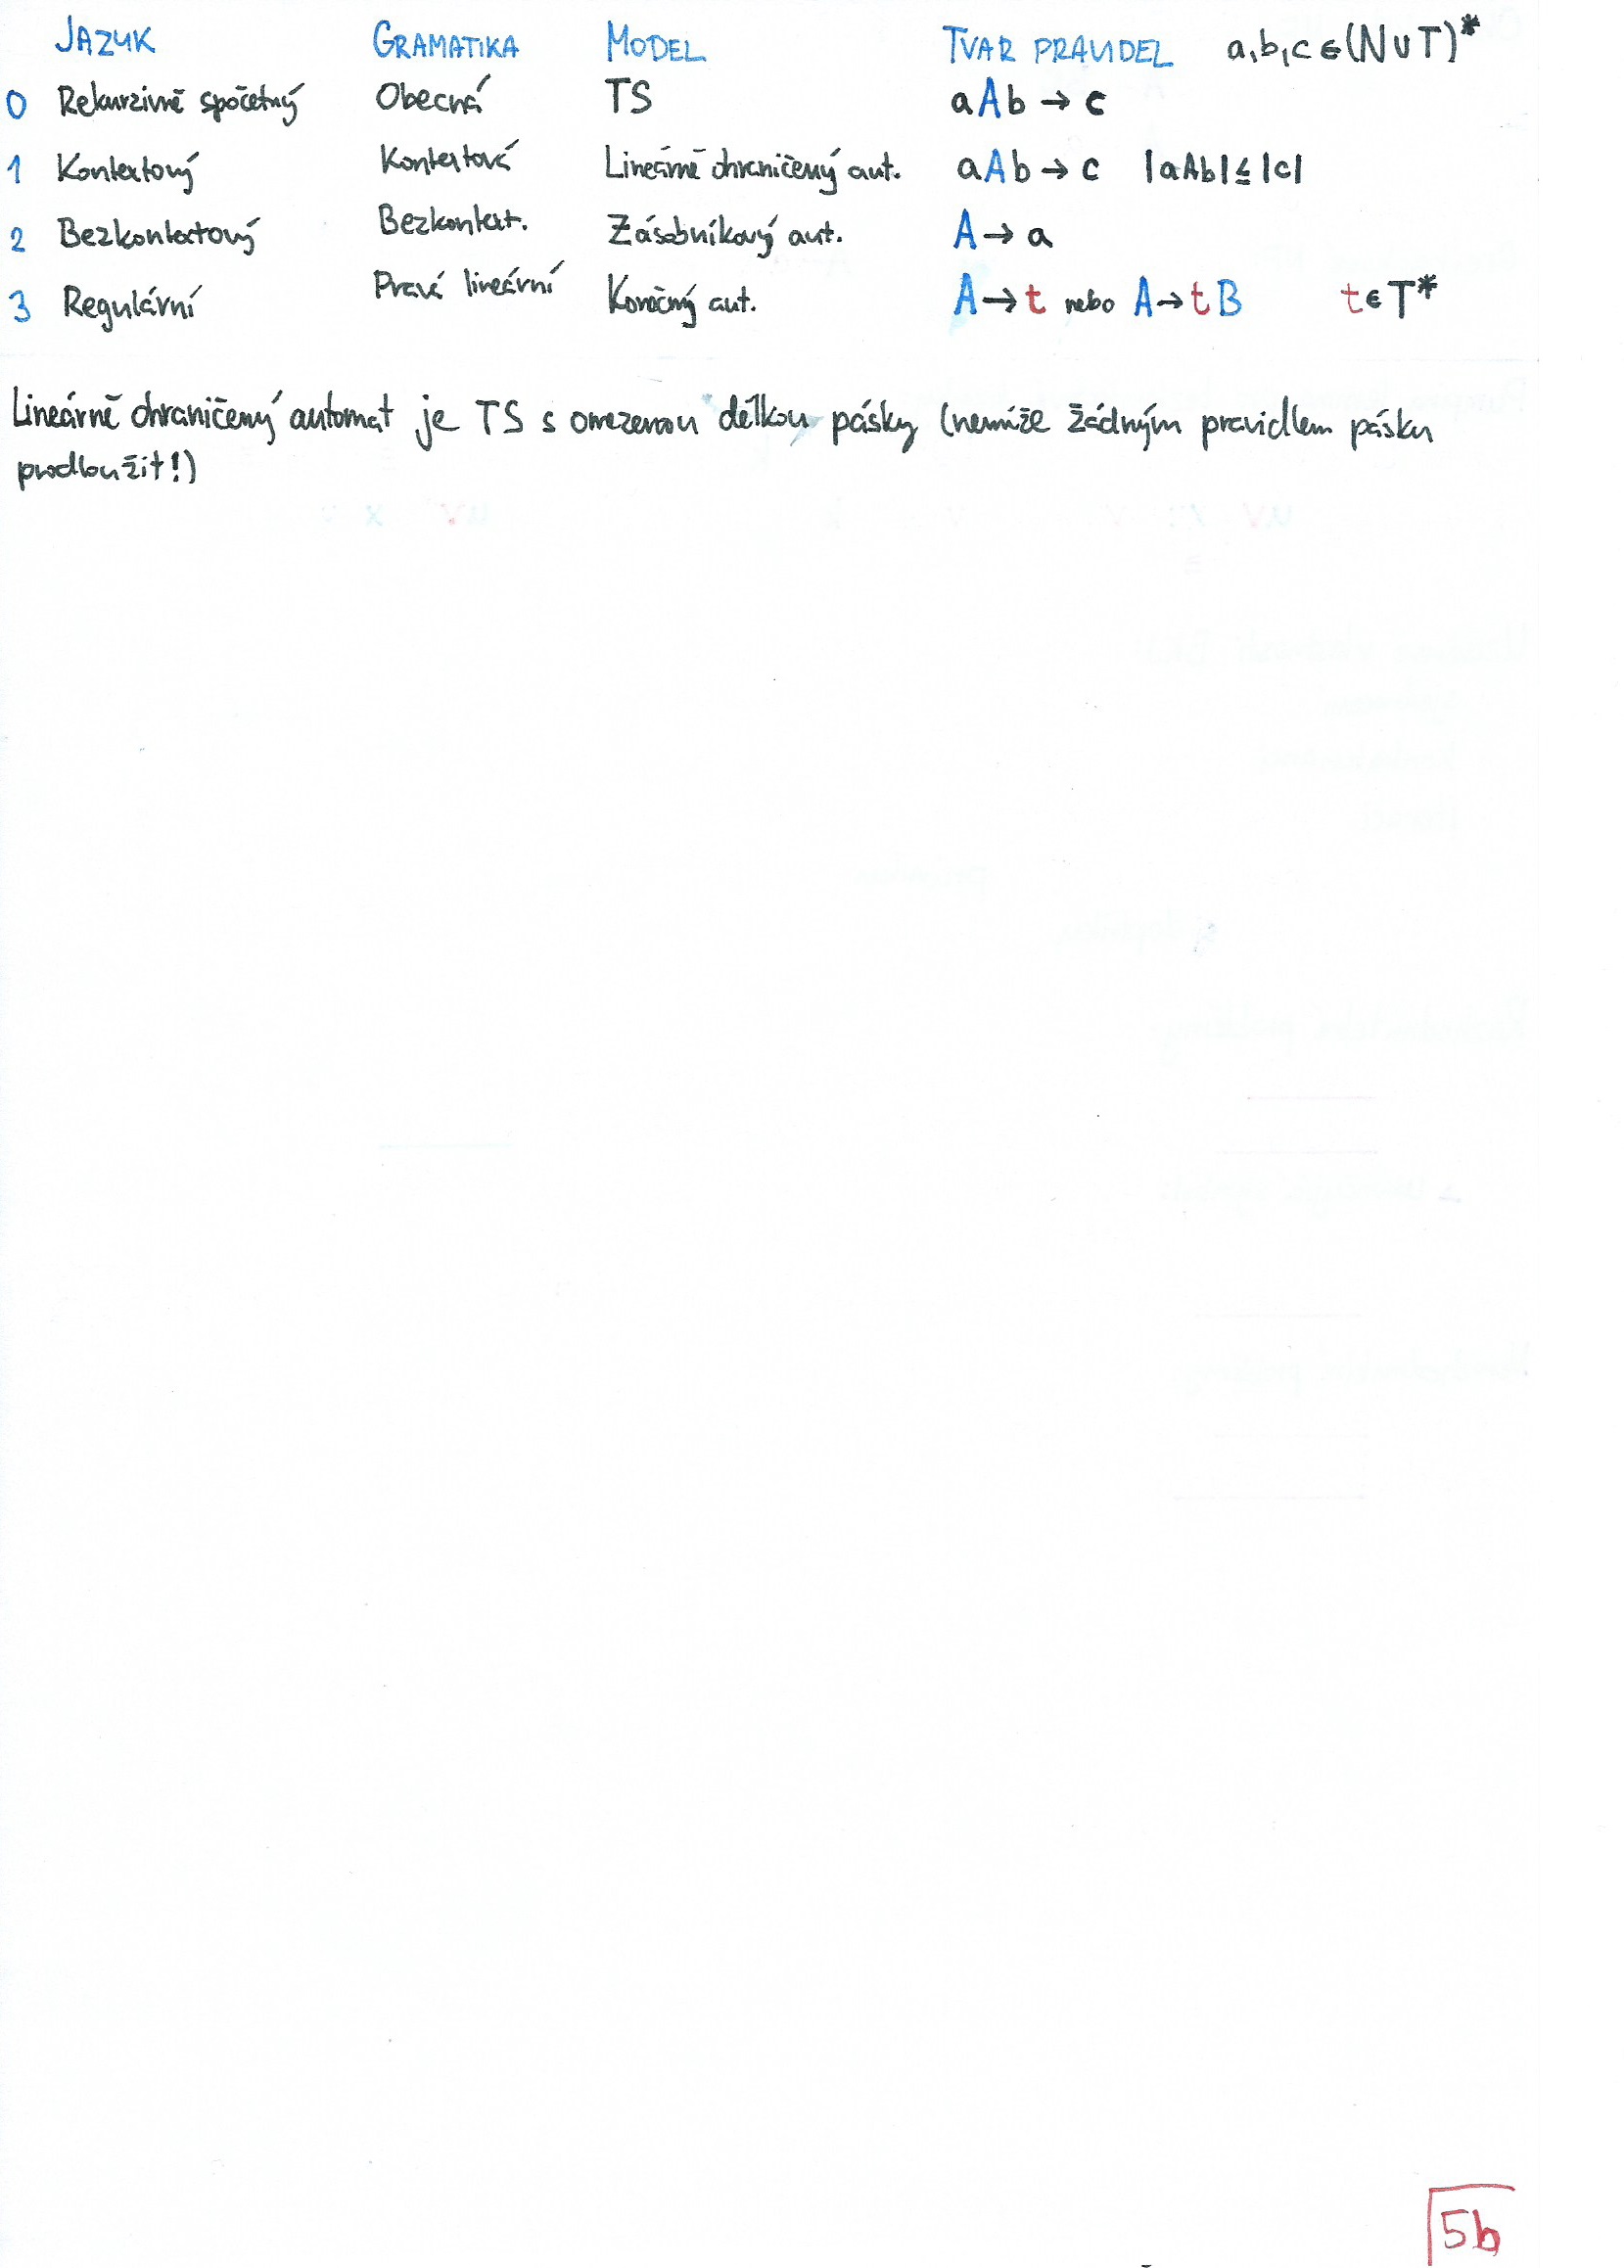 JAZYK GRAMATIKA MODEL TVAR PRAVIDEL a,b,c ∈ (N ∪ T)*
0 Rekurzivně spočetný Obecná TS aAb → c
1 Kontextový Kontextová Lineárně ohraničený aut. aAb → c |aAb| ≤ |c|
2 Bezkontextový Bezkontext. Zásobníkový aut. A → a
3 Regulární Pravá lineární Konečný aut. A → t nebo A → tB t ∈ T*
Lineárně ohraničený automat je TS s omezenou délkou pásky (nemůže žádným pravidlem pásku
prodloužit!)
5b